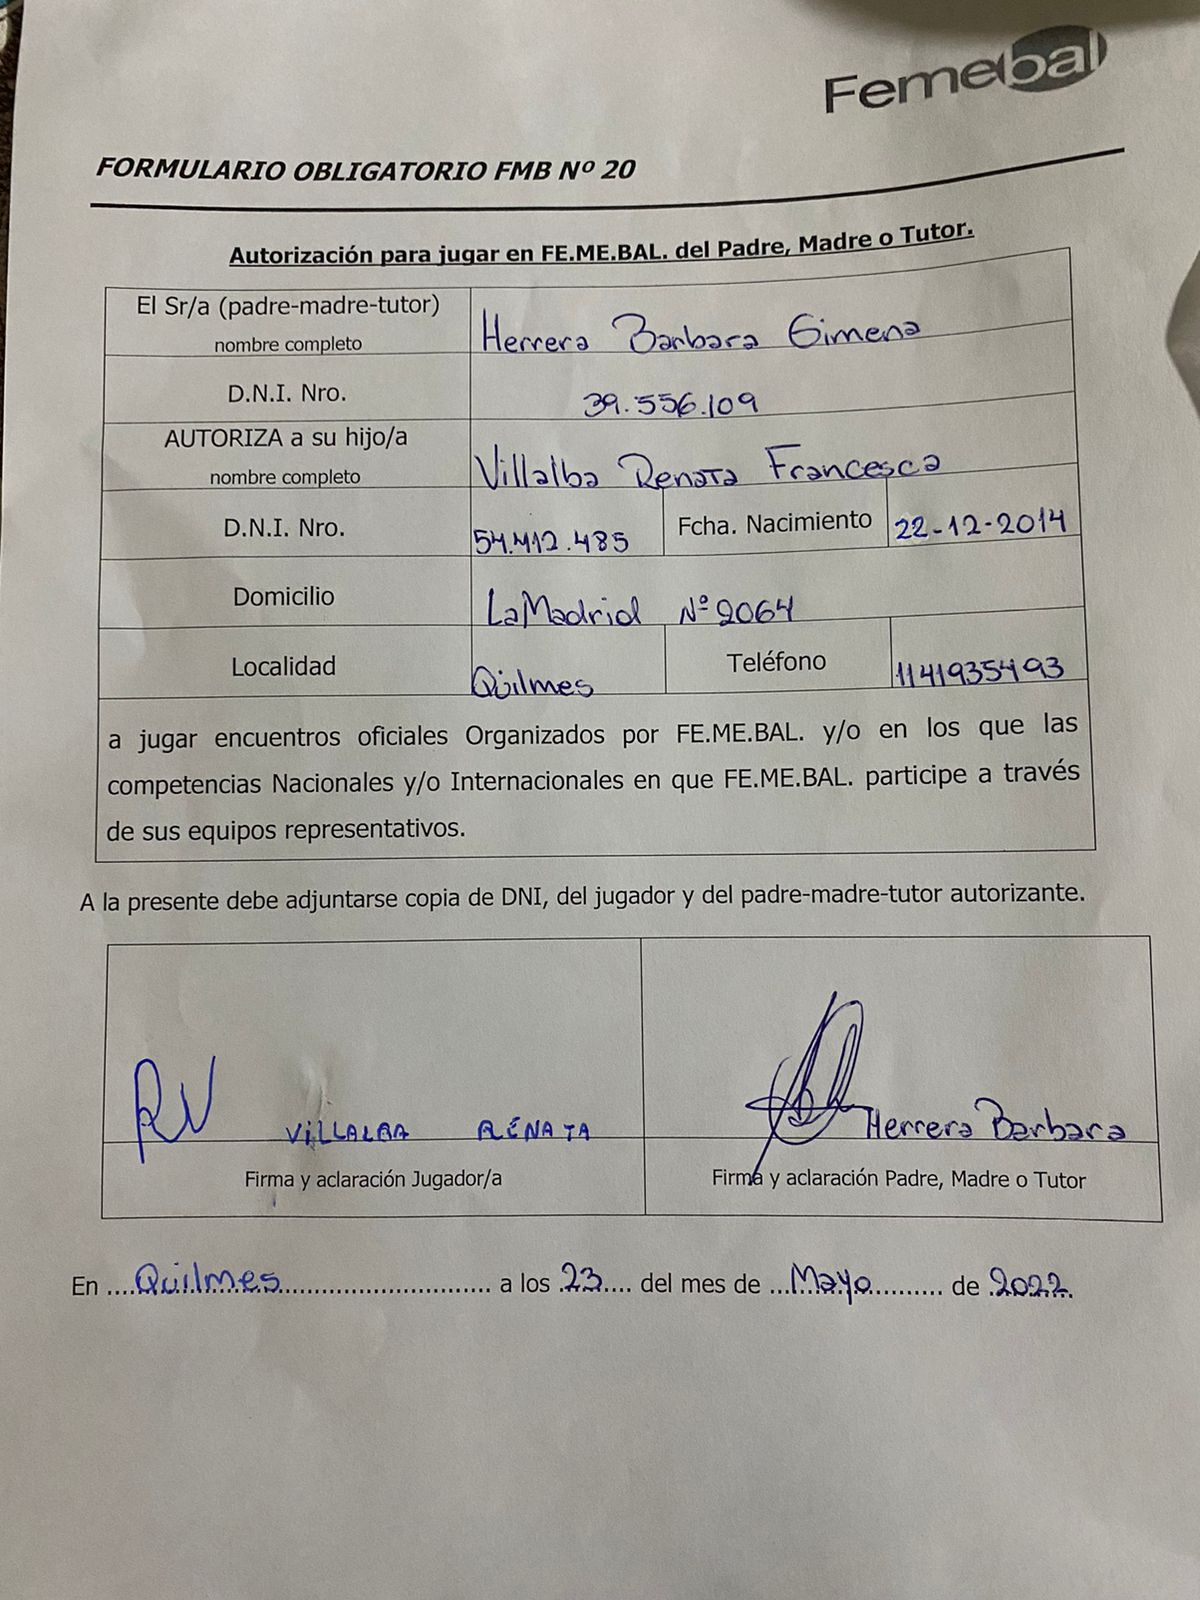 Femebal
FORMULARIO OBLIGATORIO FMB Nº 20
Autorización para jugar en FE.ME.BAL. del Padre, Madre o Tutor.
El Sr/a (padre-madre-tutor)
nombre completo
Herrera Barbara Gimena
D.N.I. Nro.
39.556.109
AUTORIZA a su hijo/a
nombre completo
Villalba Renata Francesca
D.N.I. Nro.
54.412.485
Fcha. Nacimiento
22-12-2014
Domicilio
LaMadrid Nº 2064
Localidad
Qüilmes
Teléfono
1141935493
a jugar encuentros oficiales Organizados por FE.ME.BAL. y/o en los que las
competencias Nacionales y/o Internacionales en que FE.ME.BAL. participe a través
de sus equipos representativos.
A la presente debe adjuntarse copia de DNI, del jugador y del padre-madre-tutor autorizante.
RV VILLALBA RENATA
Herrera Barbara
Firma y aclaración Jugador/a
Firma y aclaración Padre, Madre o Tutor
En ....Qüilmes.................................. a los 23.... del mes de ...Mayo.......... de 2022.